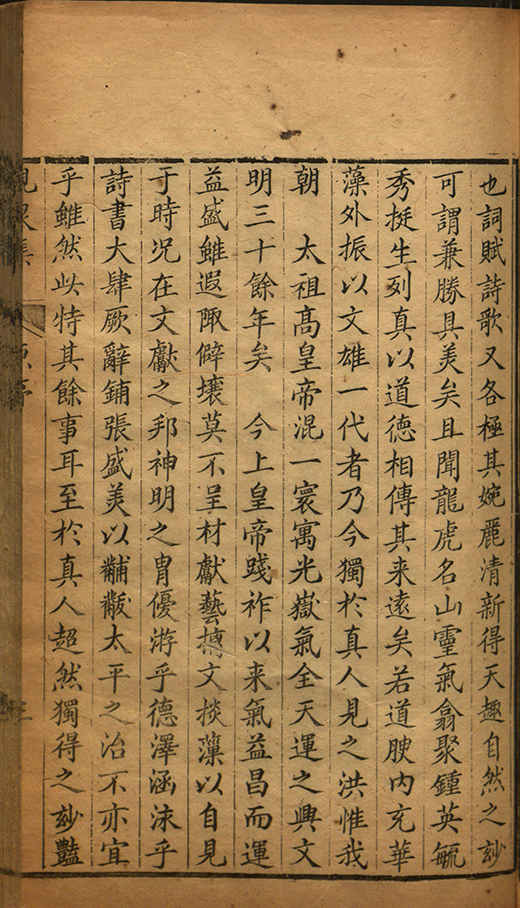 也詞賦詩歌又各極其婉麗清新得天趣自然之玅
可謂兼勝具美矣且聞龍虎名山靈氣翕聚鍾英毓
秀挺生列真以道德相傳其来遠矣若道腴内充華
藻外振以文雄一代者乃今獨於真人見之洪惟我
朝　太祖髙皇帝混一寰㝢光嶽氣全天運之興文
明三十餘年矣　今上皇帝踐祚以来氣益昌而運
益盛雖遐陬僻壤莫不呈材獻藝摛文掞藻以自見
于時况在文獻之邦神明之胄優游乎德澤涵泳乎
詩書大肆厥辭鋪張盛美以黼黻太平之治不亦宜
乎雖然此特其餘事耳至於真人超然獨得之玅豔
峴泉集　原序